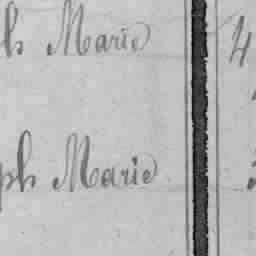 ph Marie 4
ph Marie